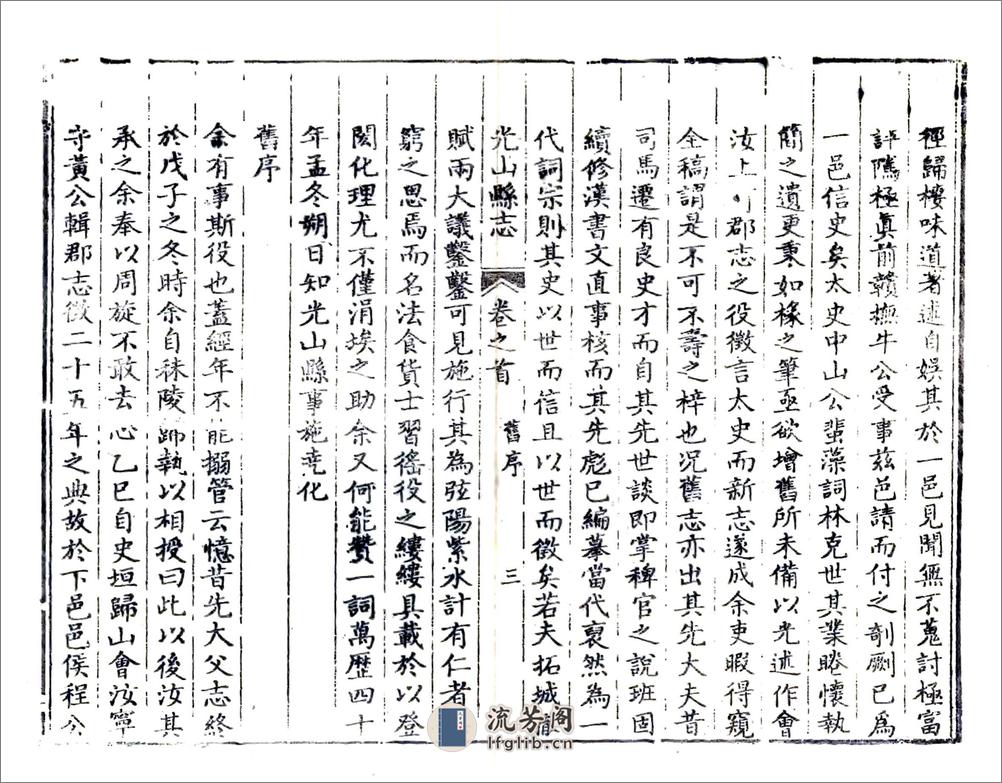 徑歸樓味道著述自娛其於一邑見聞無不蒐討極富
評隲極眞前贛撫牛公受事茲邑請而付之剞劂已爲
一邑信史矣太史中山公蜚藻詞林克世其業睠懷執
簡之遺更秉如椽之筆亟欲增舊所未備以光述作會
汝上郡志之役徵言太史而新志遂成余吏暇得窺
全稿謂是不可不壽之梓也況舊志亦出其先大夫昔
司馬遷有良史才而自其先世談即掌稗官之說班固
續修漢書文直事核而其先彪已編摹當代裒然為一
代詞宗則其史以世而信且以世而徵矣若夫拓城
光山縣志 卷之首 舊序 三
賦兩大議鑿鑿可見施行其為弦陽紫水計有仁者
窮之思焉而名法食貨士習徭役之縷縷具載於以登
閎化理尤不僅涓埃之助余又何能贊一詞萬歷四十
年孟冬朔日知光山縣事施堯化
舊序
余有事斯役也蓋經年不能搦管云憶昔先大父志終
於戊子之冬時余自秣陵歸執以相授曰此以後汝其
承之余奉以周旋不敢去心乙巳自史垣歸山會汝寧
守黃公輯郡志徵二十五年之典故於下邑邑侯程公
流芳阁
lfglib.cn